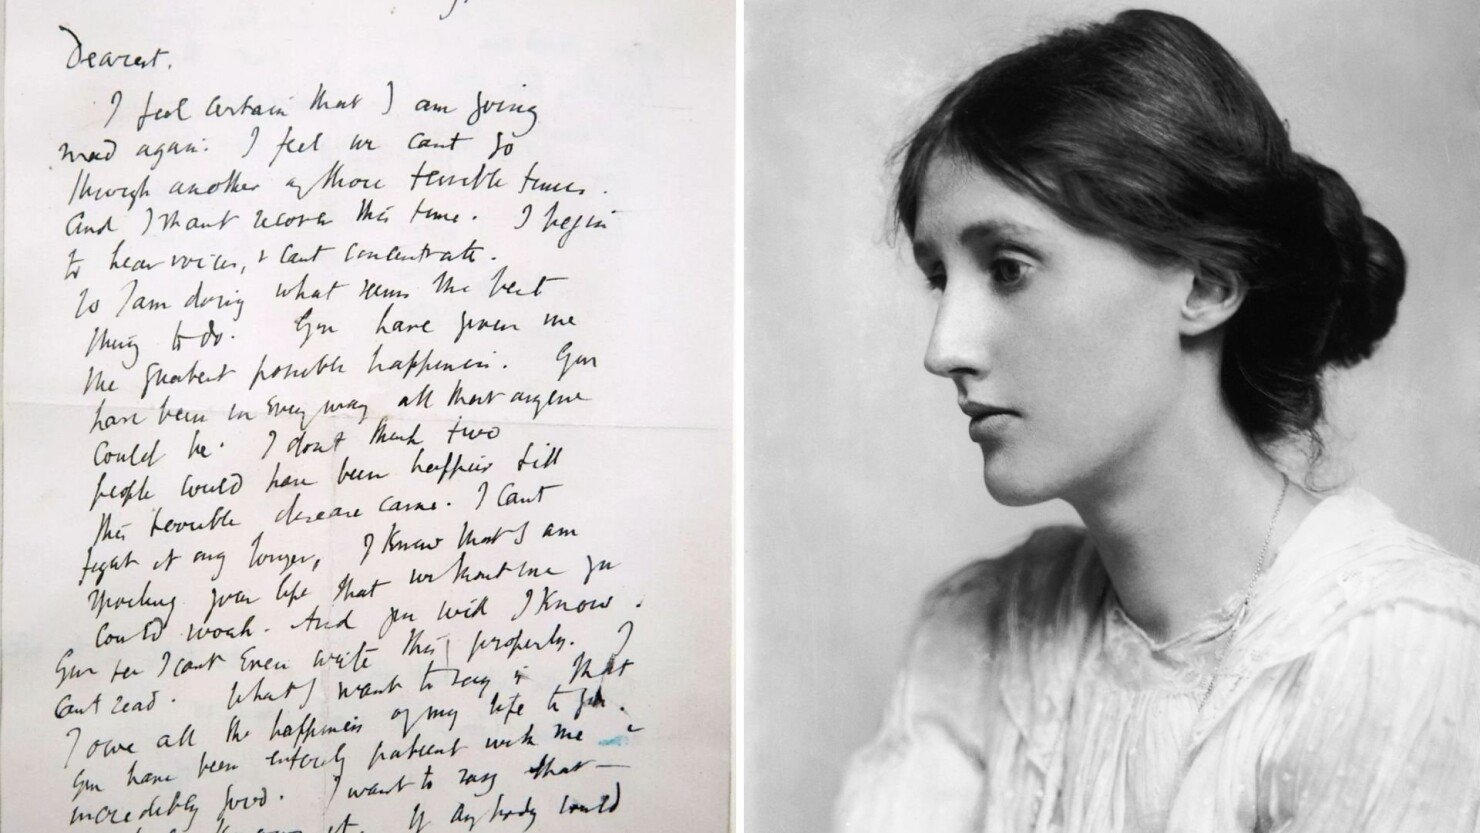 Dearest.
I feel certain that I am going
mad again. I feel we cant go
through another of those terrible times.
And I shant recover this time. I begin
to hear voices, & cant concentrate.
So I am doing what seems the best
thing to do. You have given me
the greatest possible happiness. You
have been in every way all that anyone
could be. I dont think two
people could have been happier till
this terrible disease came. I cant
fight it any longer, I know that I am
spoiling your life that without me you
could work. And you will I know.
You see I cant even write this properly. I
cant read. What I want to say is that
I owe all the happiness of my life to you.
You have been entirely patient with me &
incredibly good. I want to say that –
If anybody could